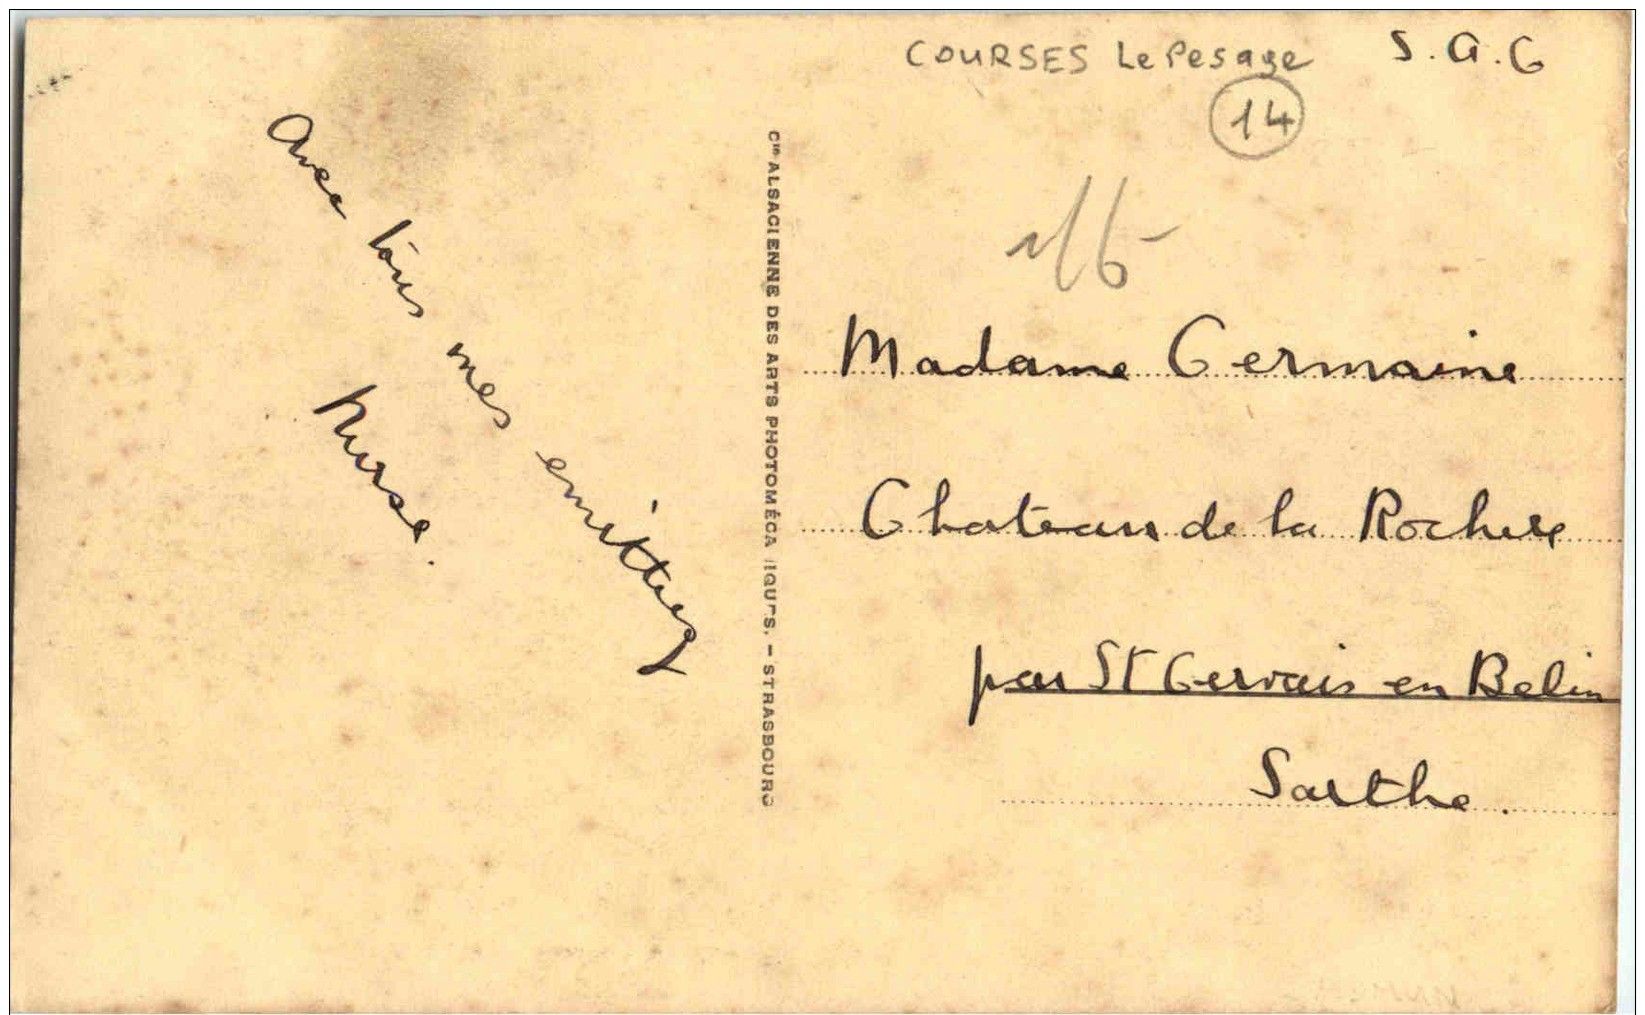 COURSES Le Pesage S.A.G
14
Avec tous mes amitiés
Nurse.
Cie ALSACIENNE DES ARTS PHOTOMÉCANIQUES. – STRASBOURG
Madame Germaine
Chateau de la Rochere
par St Gervais en Belin
Sarthe.